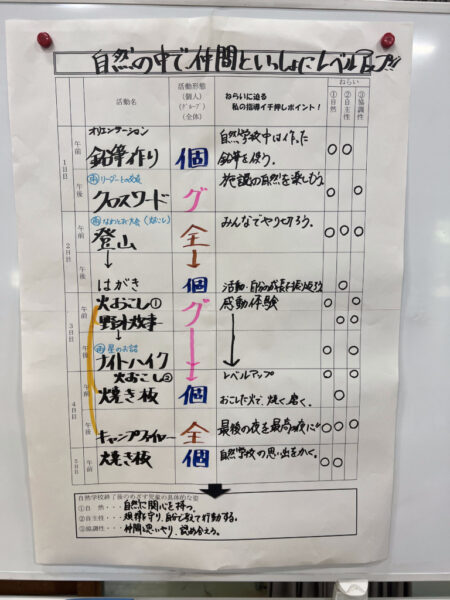 自然の中で仲間といっしょにレベルUP!!
活動名
活動形態
(個人)
(グループ)
(全体)
ねらいに迫る
私の指導イチ押しポイント!
ねらい
①自然
②自主性
③協調性
1日目
午前
オリエンテーション
鉛筆作り
個
自然学校中は作った
鉛筆を使う。
○○
午後
雨 リーダーとの交流
クロスワード
グ
施設の自然を楽しむ。
○ ○
2日目
午前
登山
全
みんなでやり切ろう。
○○○
午後
↓
はがき
個
活動・自分の成長
○
3日目
午前
火おこし①
グ
感動体験
○
野外炊事
○○
午後
雨 星のお話
ナイトハイク
○ ○
4日目
午前
火おこし②
レベルアップ
○ ○
焼き板
個
おこした火で、焼く、磨く。
○
午後
キャンプファイヤー
全
最後の夜を最高の夜に!!
○○○
5日目
午前
焼き板
個
自然学校の思い出をかく。
○○
自然学校終了後のめざす児童の具体的な姿
①自 然・・・自然に関心を持つ。
②自主性・・・規律を守り、自分で考えて行動する。
③協調性・・・仲間を思いやり、認め合える。